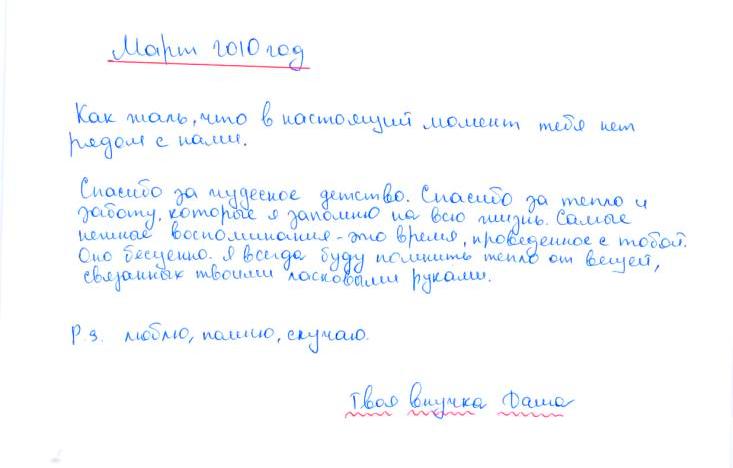 Март 2010 год
Как жаль, что в настоящий момент тебя нет
рядом с нами.
Спасибо за чудесное детство. Спасибо за тепло и
заботу, которые я запомню на всю жизнь. Самые
нежные воспоминания - это время, проведенное с тобой.
Оно бесценно. Я всегда буду помнить тепло от вещей,
связанных твоими ласковыми руками.
P.S. люблю, помню, скучаю.
Твоя внучка Даша